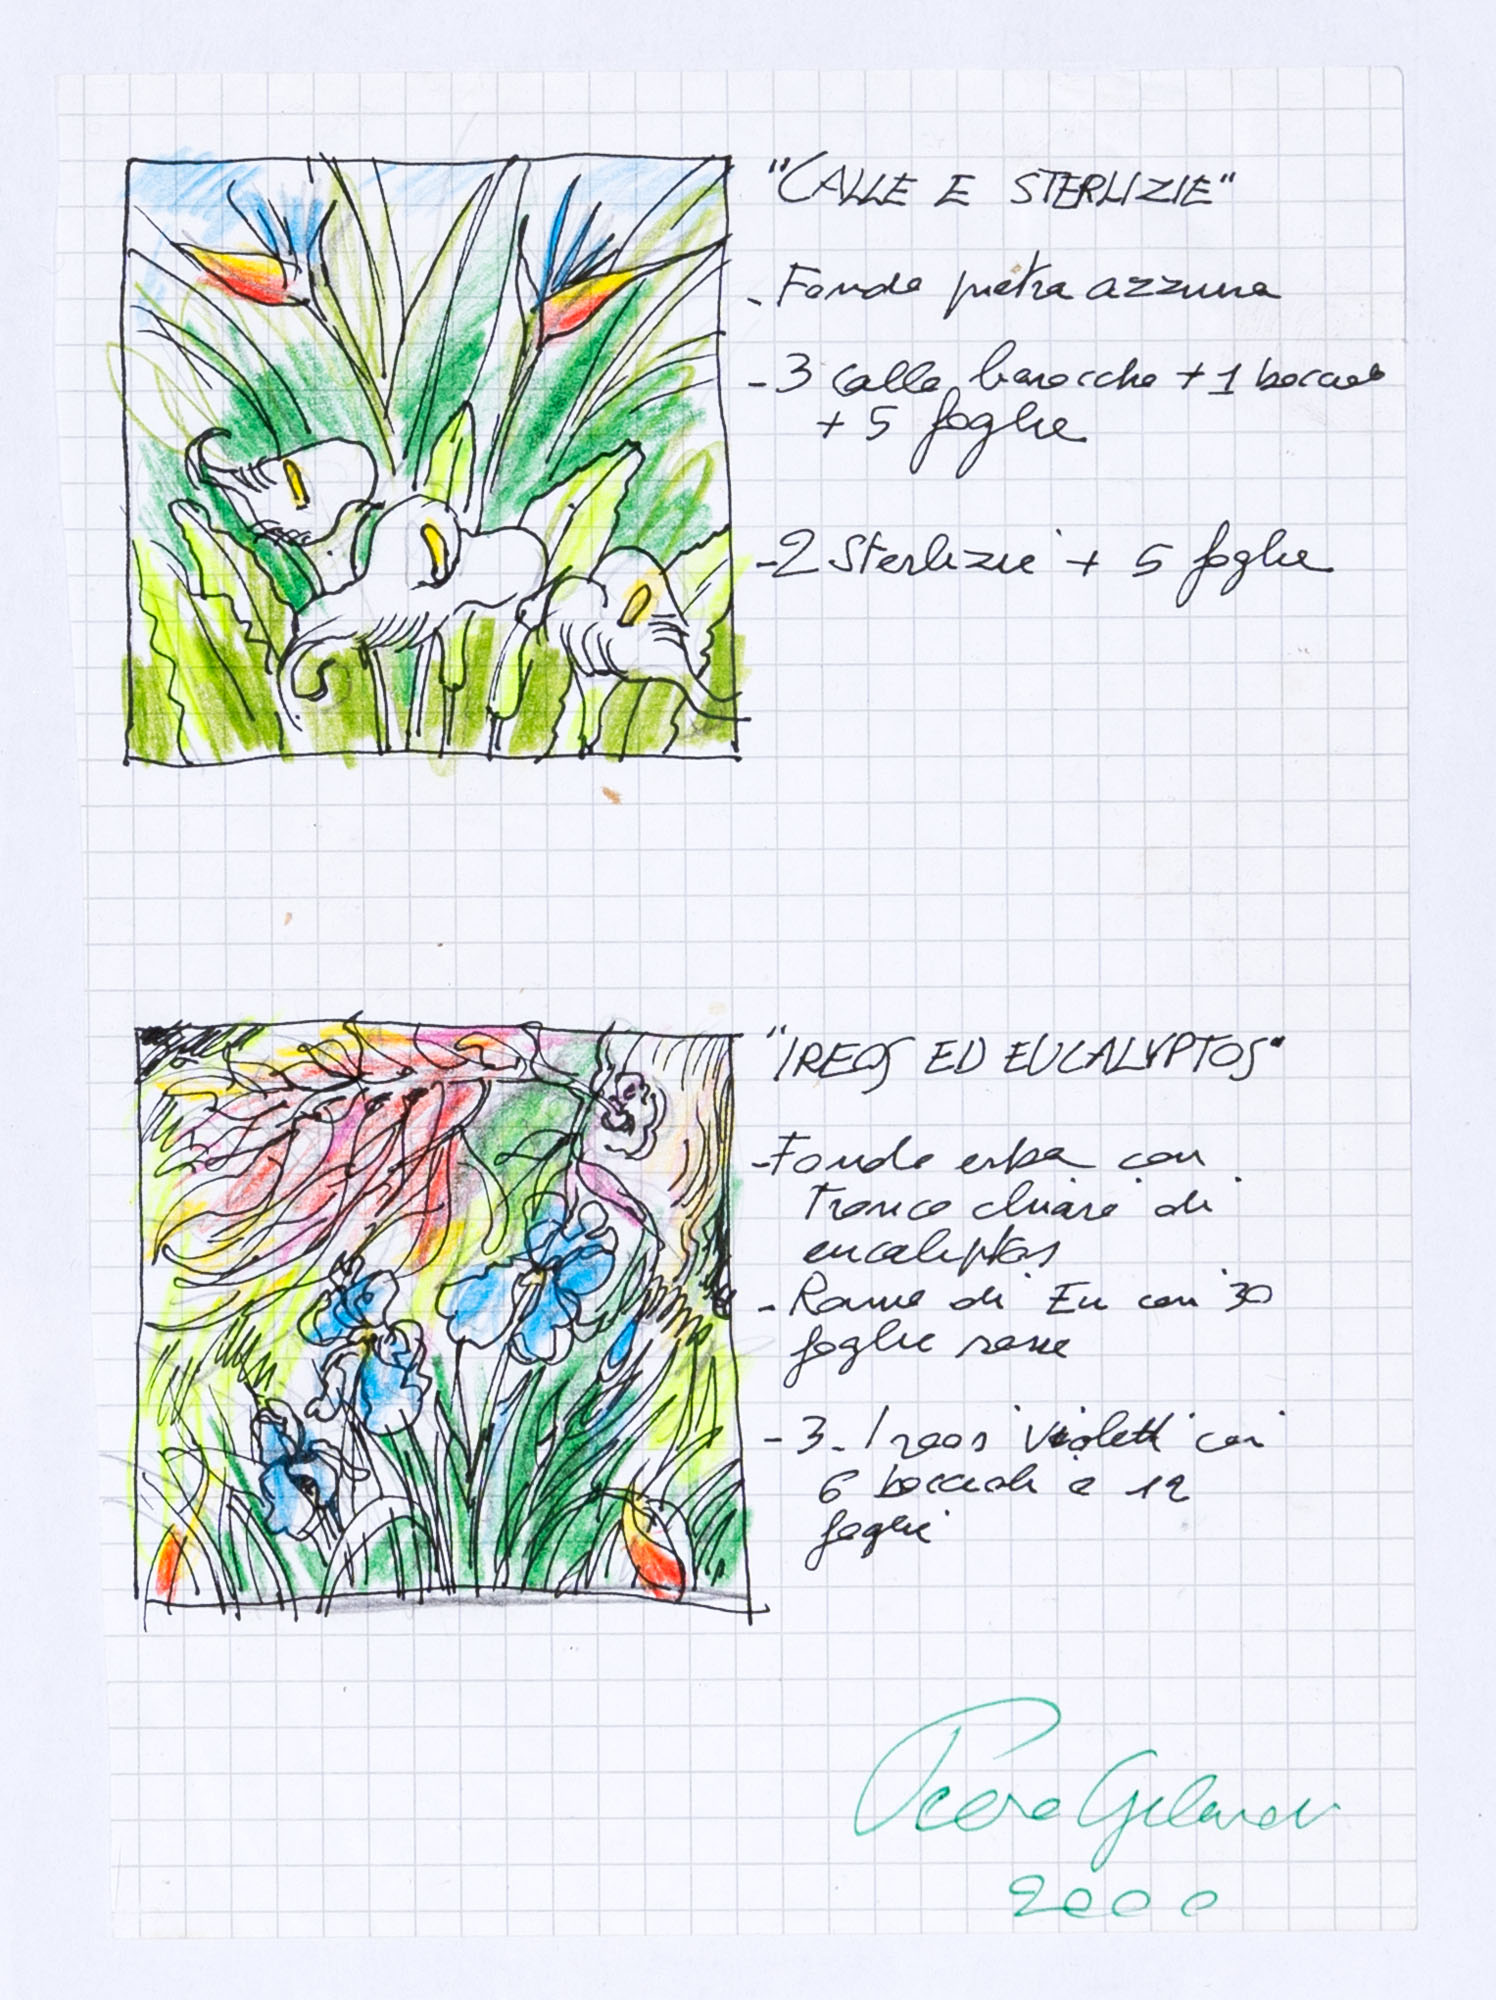 "CALLE E STERLIZIE"
- Fondo pietra azzurra
- 3 calle barocche + 1 bocciolo
+ 5 foglie
- 2 Sterlizie + 5 foglie
"IREOS ED EUCALYPTOS"
- Fondo erba con
Tronco chiaro di
eucaliptos
- Ramo di Eu con 30
foglie rosse
- 3. Ireos Violetti con
6 boccioli e 12
foglie
Piero Gilardi
2000